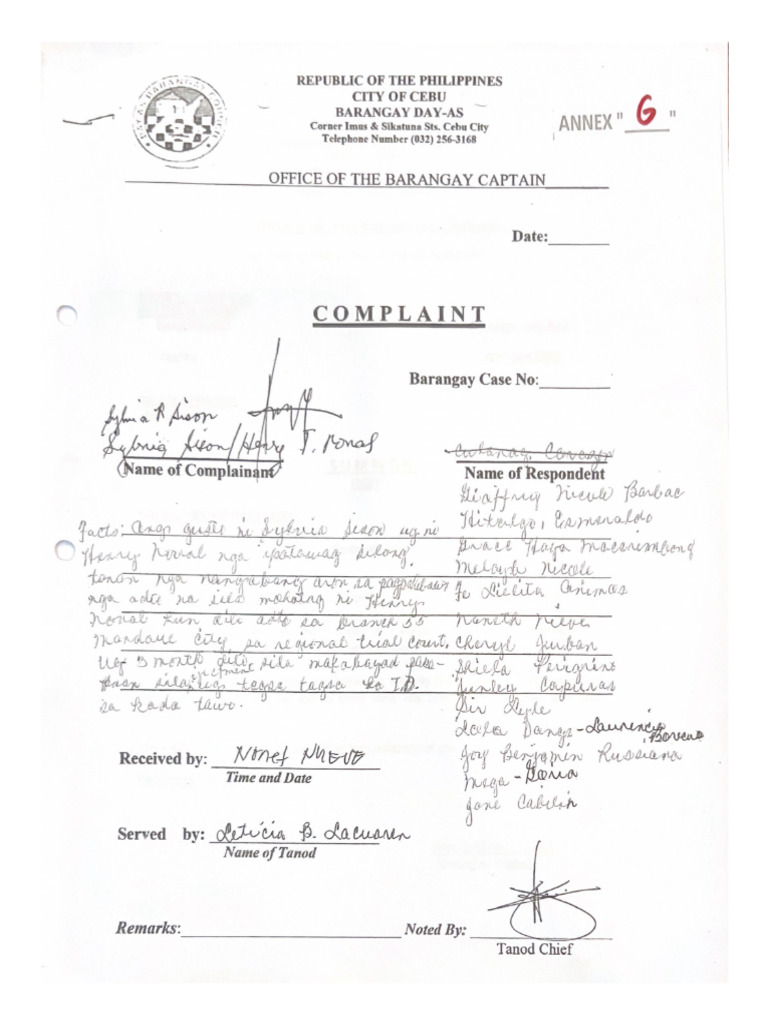 REPUBLIC OF THE PHILIPPINES
CITY OF CEBU
BARANGAY DAY-AS
Corner Imus & Sikatuna Sts. Cebu City
Telephone Number (032) 256-3168
ANNEX "G"
OFFICE OF THE BARANGAY CAPTAIN
Date:
COMPLAINT
Barangay Case No:
Sylvia R Sison
Sylvia Sison/Henry T. Nonal
Name of Complainant
Name of Respondent
Nicole Barbac
Hidalgo, Esmeraldo
Grace Haya
Nicole
Fe Lielita Animas
Naneth Nieve
Cheryl Jurban
Shiela
Junley
Sir Lyle
Danga - Laurencio
Joy Benjamin Russiana
Mega - Doria
Jane Cabilin
Facts: Ang guste ni Sylvia Sison ug ni
Henry Nonal nga ipatawag silang
tanan nga nangabang aron sa
nga adto na sila mohatag ni Henry
Nonal kun dili adto sa Branch 55
Mandaue City, sa regional trial court.
Ug 3 month dili sila makabayad
tagsa tagsa I.D.
sa kada tawo.
Received by: Nonet Nueve
Time and Date
Served by: Leticia B. Lacuaren
Name of Tanod
Remarks:
Noted By:
Tanod Chief